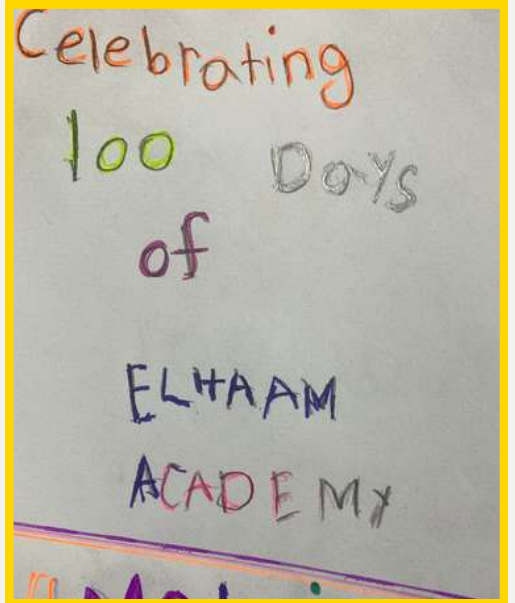 Celebrating
100 Days
of
ELHAAM
ACADEMY